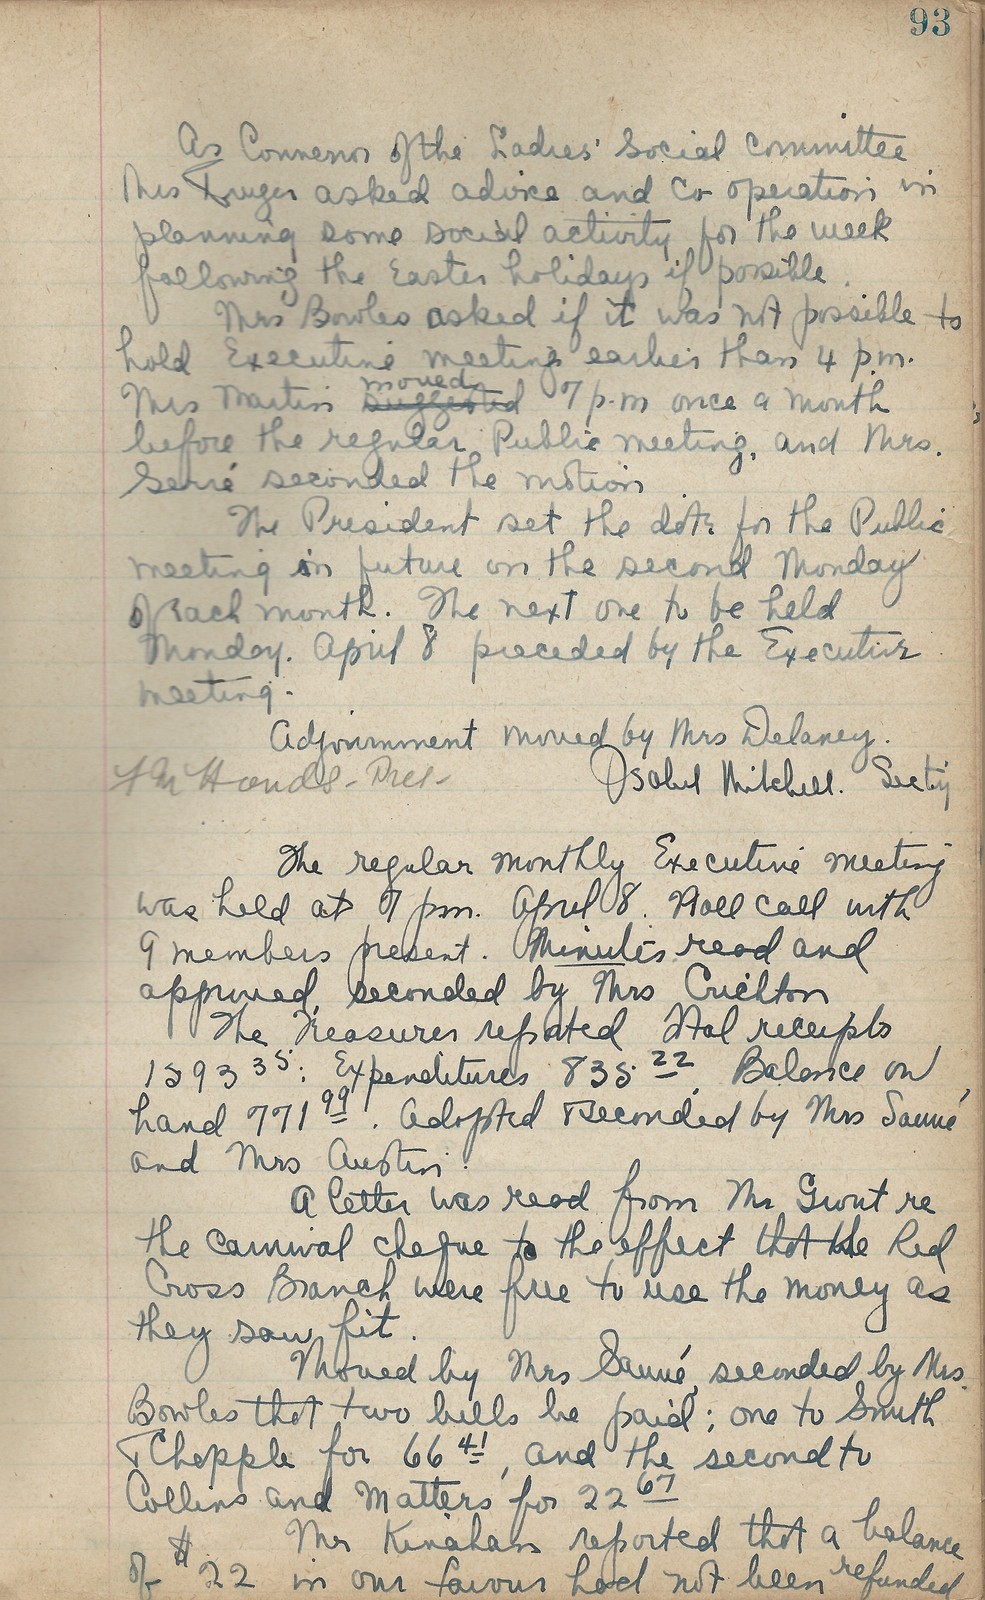 93
As Convenor of the Ladies' Social Committee
Mrs Kruger asked advice and Co operation in
planning some social activity for the week
following the Easter holidays if possible.
Mrs Bowles asked if it was not possible to
hold Executive meetings earlier than 4 p.m.
moved
Mrs Martin suggested 7 p.m once a month
before the regular Public meeting, and Mrs.
seconded the motion
The President set the date for the Public
meeting in future on the second Monday
of each month. The next one to be held
Monday. April 8 preceded by the Executive
meeting.
Adjournment moved by Mrs Delaney.
Hands - Pres-
Isabel Mitchell. Secty
The regular monthly Executive meeting
was held at 7 pm. April 8. Roll call with
9 members present. Minutes read and
approved, seconded by Mrs Crichton
The Treasurer reported total receipts
1593 35: Expenditures 835 22 Balance on
hand 771 99. Adopted seconded by Mrs Sauvé
and Mrs Austin.
A letter was read from Mr Grout re
the carnival cheque to the effect that the Red
Cross Branch were free to use the money as
they saw fit.
Moved by Mrs Sauvé, seconded by Mrs.
Bowles that two bills be paid; one to Smith
& Chapple for 66 41, and the second to
Collins and Matters for 22 67
Mr Kinahan reported that a balance
of $22 in our favour had not been refunded